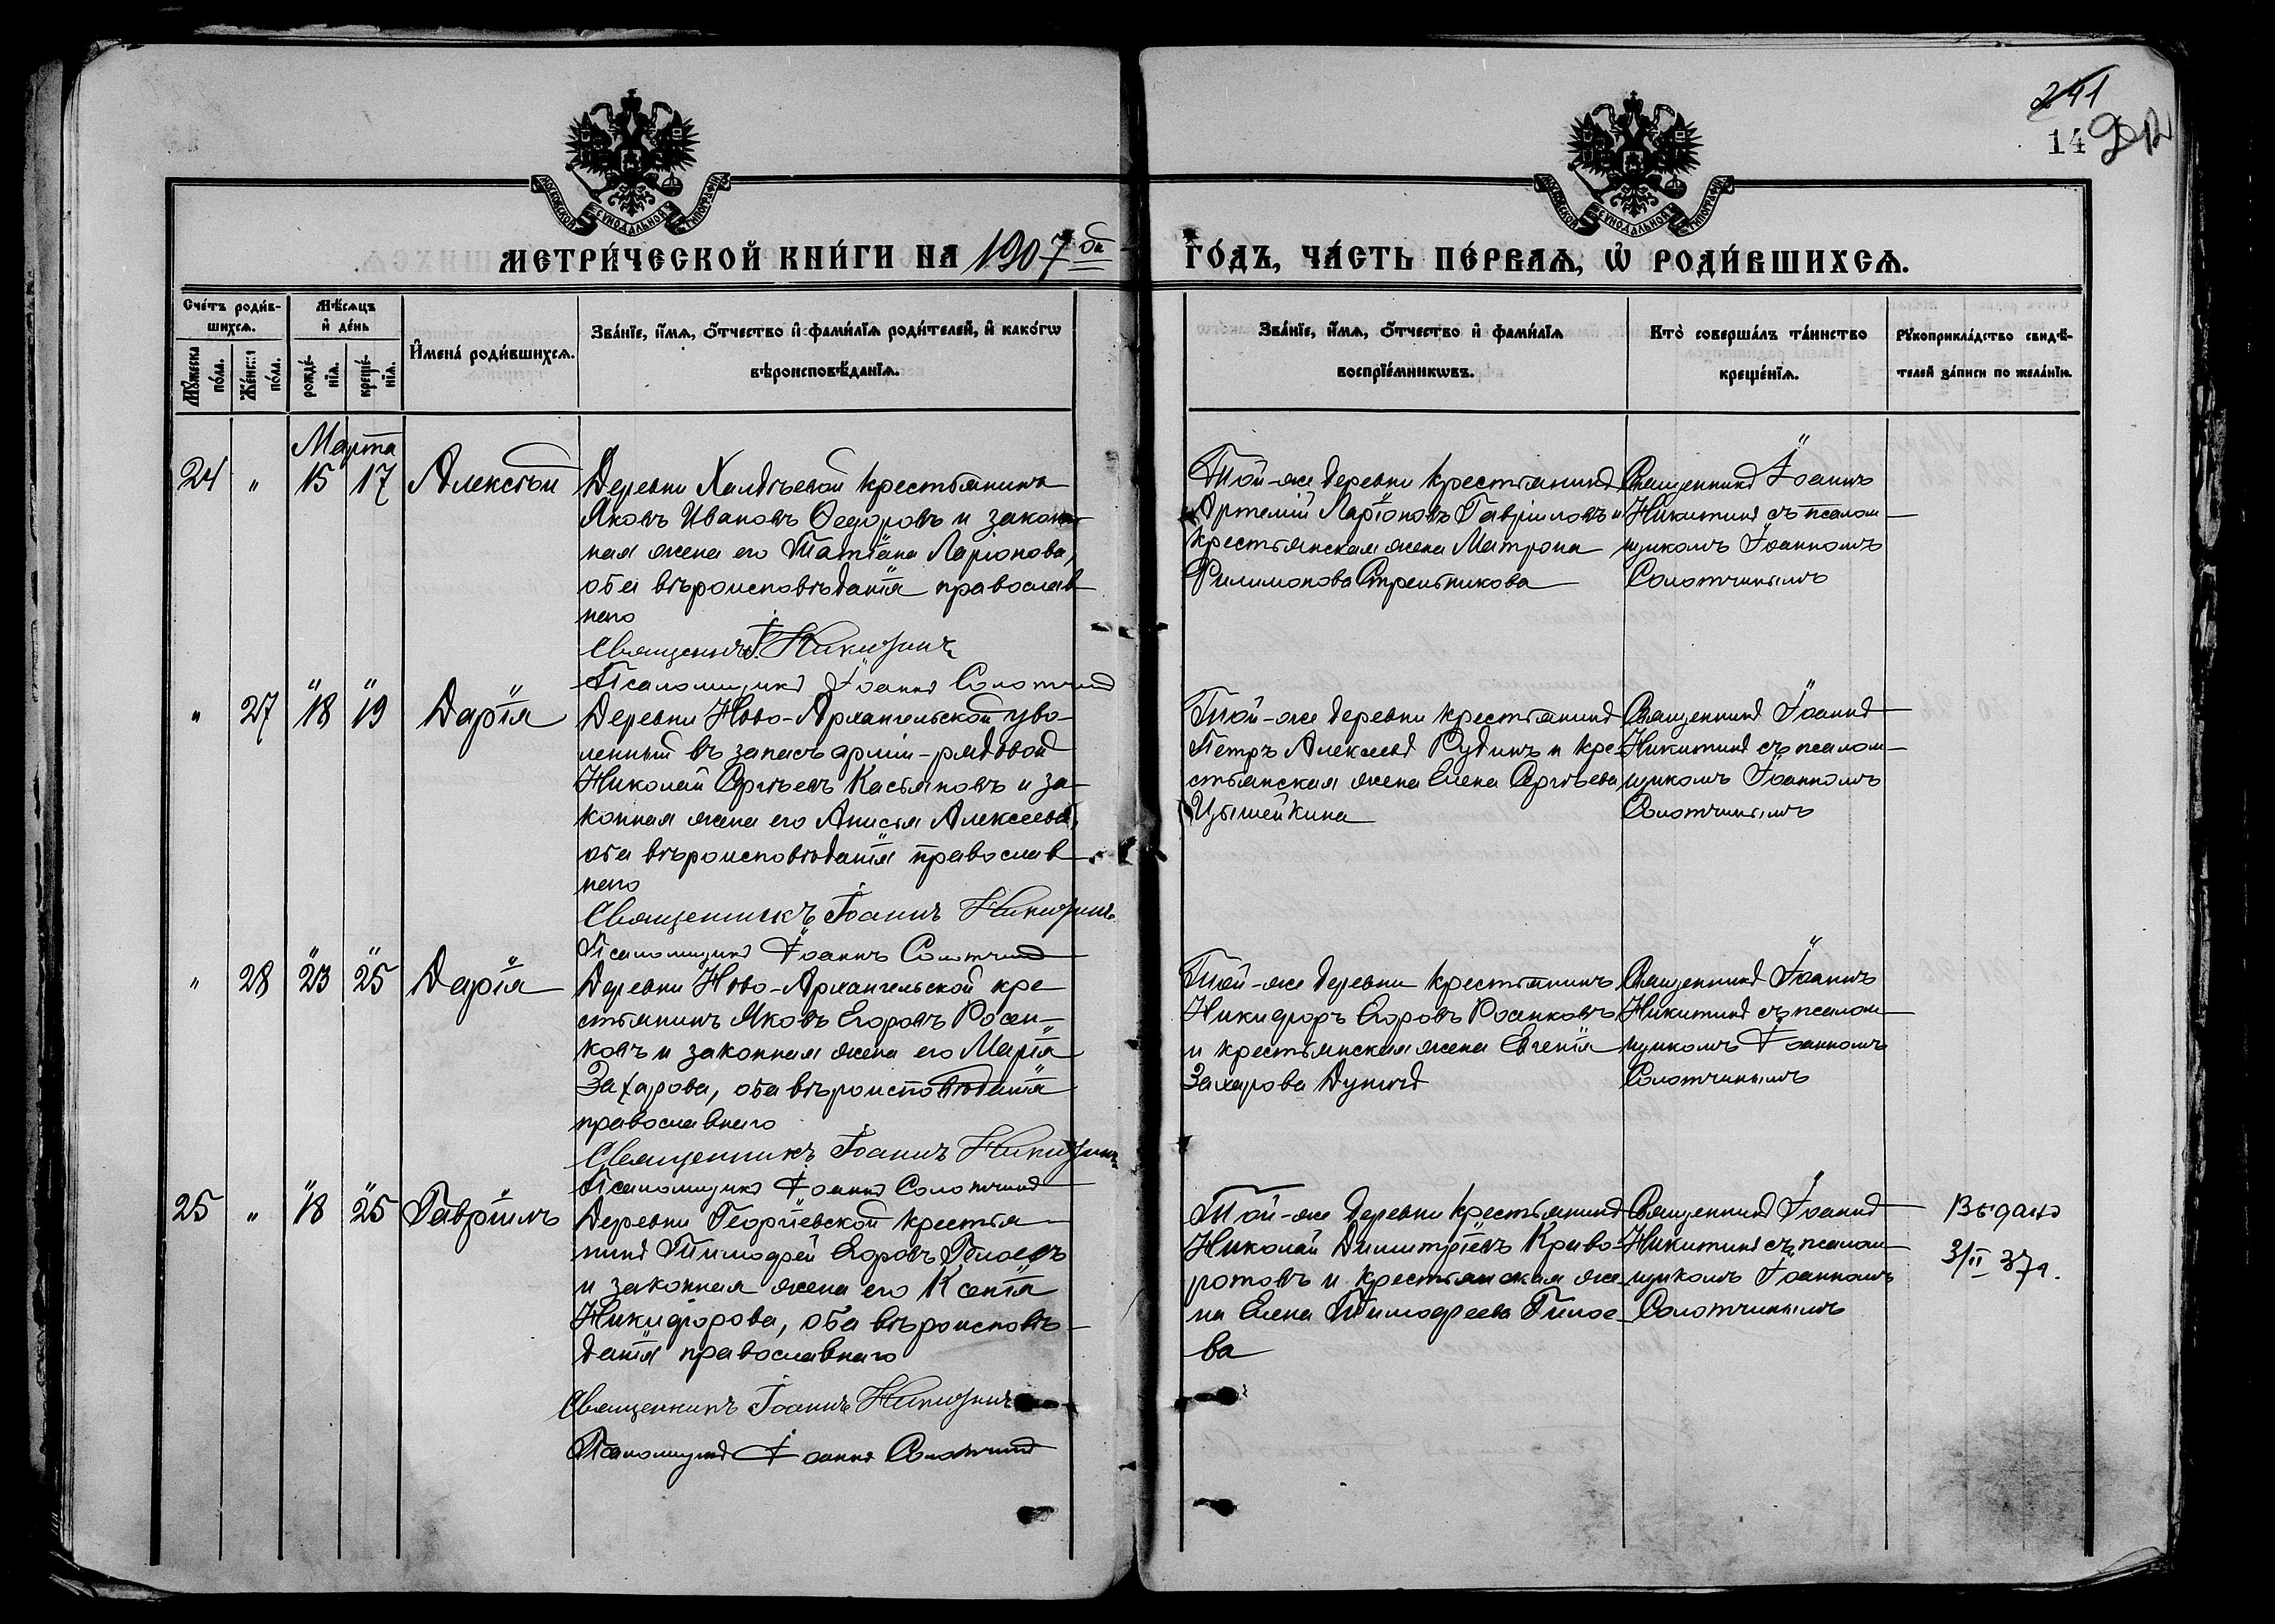 241
14
МОСКОВСКОЙ СѴНОДАЛЬНОЙ ТИПОГРАФІИ
МОСКОВСКОЙ СѴНОДАЛЬНОЙ ТИПОГРАФІИ
МЕТРИ́ЧЕСКОЙ КНИ́ГИ НА 1907 ой
ГО́ДЪ, ЧА́СТЬ ПЕ́РВАѦ, Ѡ҆ РОДИ́ВШИХСѦ.
Сче́тъ роди́в-
шихсѧ.
Мꙋ́жеска по́ла.
Же́нска по́ла.
Мѣ́сѧцъ
и҆ де́нь
рожде́-
нїѧ.
креще́-
нїѧ.
И҆мена̀ роди́вшихсѧ.
Зва́нїе, и҆́мѧ, ѻ҆́тчество и҆ фами́лїѧ роди́телей, и҆ како́гѡ
вѣроисповѣ́данїѧ.
Зва́нїе, и҆́мѧ, ѻ҆́тчество и҆ фами́лїѧ
воспрїе́мникѡвъ.
Кто̀ соверша́лъ та́инство
креще́нїѧ.
Рꙋкоприкла́дство свидѣ́-
телей за́писи по жела́нїю.
Марта
24 " 15 17 Алексѣй
Деревни Халдѣевой крестьянинъ
Яковъ Ивановъ Ѳедоровъ и закон-
ная жена его Татіана Ларіонова,
оба вѣроисповѣданія православ-
наго
Священникъ І. Никитинъ
Псаломщикъ Іоаннъ Солотчинъ
Той-же деревни крестьянинъ
Артемій Ларіоновъ Гавриловъ и
крестьянская жена Матрона
Филимонова Стрельникова
Священникъ Іоаннъ
Никитинъ съ псалом-
щикомъ Іоанномъ
Солотчинымъ
" 27 18 19 Дарія
Деревни Ново-Архангельской уво-
ленный въ запасъ арміи-рядовой
Николай Сергѣевъ Касьяновъ и за-
конная жена его Анисья Алексеева,
оба вѣроисповѣданія православ-
наго
Священникъ Іоаннъ Никитинъ
Псаломщикъ Іоаннъ Солотчинъ
Той-же деревни крестьянинъ
Петръ Алексеевъ Рудинъ и кре-
стьянская жена Елена Сергѣева
Цышейкина
Священникъ Іоаннъ
Никитинъ съ псалом-
щикомъ Іоанномъ
Солотчинымъ
" 28 23 25 Дарія
Деревни Ново-Архангельской кре-
стьянинъ Яковъ Егоровъ Росен-
ковъ и законная жена его Марія
Захарова, оба вѣроисповѣданія
православнаго
Священникъ Іоаннъ Никитинъ
Псаломщикъ Іоаннъ Солотчинъ
Той-же деревни крестьянинъ
Никифоръ Егоровъ Росенковъ
и крестьянская жена Евгенія
Захарова
Священникъ Іоаннъ
Никитинъ съ псалом-
щикомъ Іоанномъ
Солотчинымъ
25 " 18 25 Гавріилъ
Деревни Георгіевской крестья-
нинъ Тимофей Егоровъ
и законная жена его Ксенія
Никифорова, оба вѣроисповѣ-
данія православнаго
Священникъ Іоаннъ Никитинъ
Псаломщикъ Іоаннъ Солотчинъ
Той-же деревни крестьянинъ
Николай Димитріевъ Криво-
ротовъ и крестьянская же-
на Елена Тимофеева Гилое-
ва
Священникъ Іоаннъ
Никитинъ съ псалом-
щикомъ Іоанномъ
Солотчинымъ
Выдано
3/II 37г.